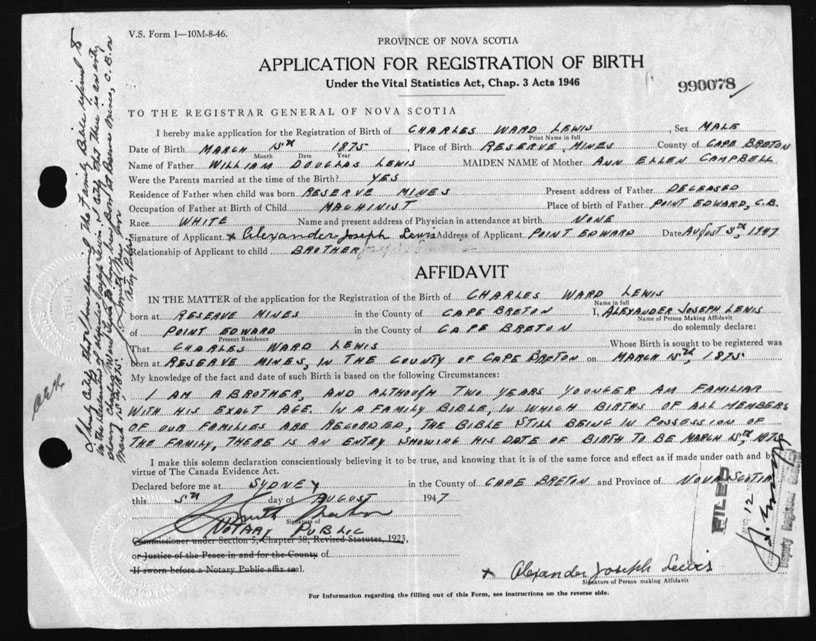 V.S. Form 1—10M-8-46.
PROVINCE OF NOVA SCOTIA
APPLICATION FOR REGISTRATION OF BIRTH
Under the Vital Statistics Act, Chap. 3 Acts 1946
990078
TO THE REGISTRAR GENERAL OF NOVA SCOTIA
I hereby make application for the Registration of Birth of CHARLES WARD LEWIS, Sex MALE
Print Name in full
Date of Birth MARCH 15TH 1875, Place of Birth RESERVE MINES County of CAPE BRETON
Month Date Year
Name of Father WILLIAM DOUGLAS LEWIS MAIDEN NAME of Mother ANN ELLEN CAMPBELL
Were the Parents married at the time of the Birth? YES
Residence of Father when child was born RESERVE MINES Present address of Father DECEASED
Occupation of Father at Birth of Child MACHINIST Place of birth of Father POINT EDWARD, C.B.
Race WHITE Name and present address of Physician in attendance at birth NONE
Signature of Applicant x Alexander Joseph Lewis Address of Applicant POINT EDWARD Date AUGUST 5TH, 1947
Relationship of Applicant to child BROTHER
AFFIDAVIT
IN THE MATTER of the application for the Registration of the Birth of CHARLES WARD LEWIS
Name in full
born at RESERVE MINES in the County of CAPE BRETON I, ALEXANDER JOSEPH LEWIS
Name of Person Making Affidavit
of POINT EDWARD in the County of CAPE BRETON do solemnly declare:
Present Residence
That CHARLES WARD LEWIS Whose Birth is sought to be registered was
born at RESERVE MINES, IN THE COUNTY OF CAPE BRETON on MARCH 15TH, 1875
My knowledge of the fact and date of such Birth is based on the following Circumstances:
I AM A BROTHER, AND ALTHOUGH TWO YEARS YOUNGER AM FAMILIAR
WITH HIS EXACT AGE. IN A FAMILY BIBLE, IN WHICH BIRTHS OF ALL MEMBERS
OF OUR FAMILIES ARE RECORDED, THE BIBLE STILL BEING IN POSSESSION OF
THE FAMILY, THERE IS AN ENTRY SHOWING HIS DATE OF BIRTH TO BE MARCH 15TH 1875
I make this solemn declaration conscientiously believing it to be true, and knowing that it is of the same force and effect as if made under oath and by
virtue of The Canada Evidence Act.
Declared before me at SYDNEY in the County of CAPE BRETON and Province of NOVA SCOTIA
this 5TH day of AUGUST 1947
Signature of
NOTARY PUBLIC
Commissioner under Section 5, Chapter 38, Revised Statutes, 1923,
or Justice of the Peace in and for the County of
If sworn before a Notary Public affix seal.
x Alexander Joseph Lewis
Signature of Person making Affidavit
For Information regarding the filling out of this Form, see instructions on the reverse side.
FILED
12
Deputy Registrar General